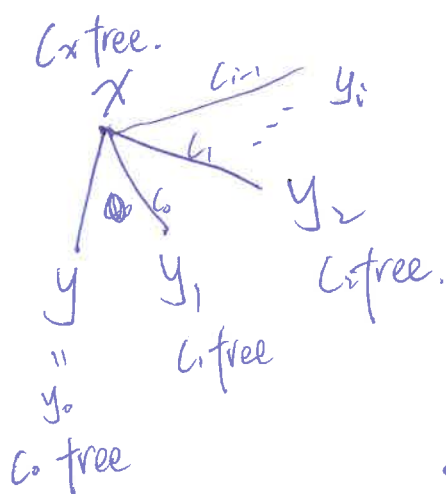 Cx tree.
x
Ci-1
yi
C1
C0
y2
C2 tree.
y
y1
C1 tree
"
y0
C0 tree